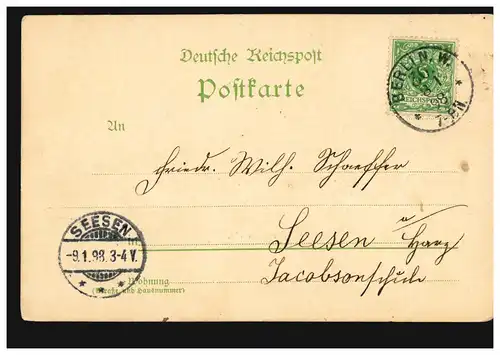 Deutsche Reichspost
Postkarte
BERLIN, W.
REICHSPOST
7-8N.
An
Friedr. Wilh. Schaeffer
Seesen a/ Harz
Jacobsonschule
SEESEN
-9.1.98.3-4 V.
Wohnung
(Straße und Hausnummer)